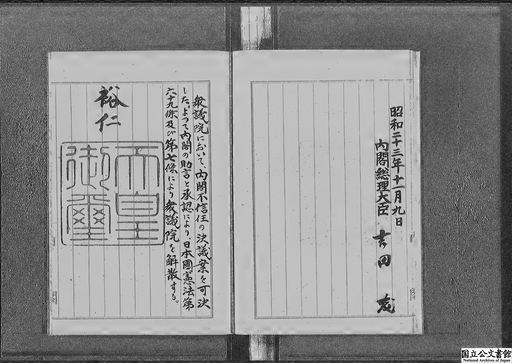 昭和二十三年十一月九日
内閣総理大臣 吉田茂
衆議院において、内閣不信任の決議案を可決
した。よつて内閣の助言と承認により、日本國憲法第
六十九條及び第七條により衆議院を解散する。
裕仁
天皇
御璽
国立公文書館
National Archives of Japan